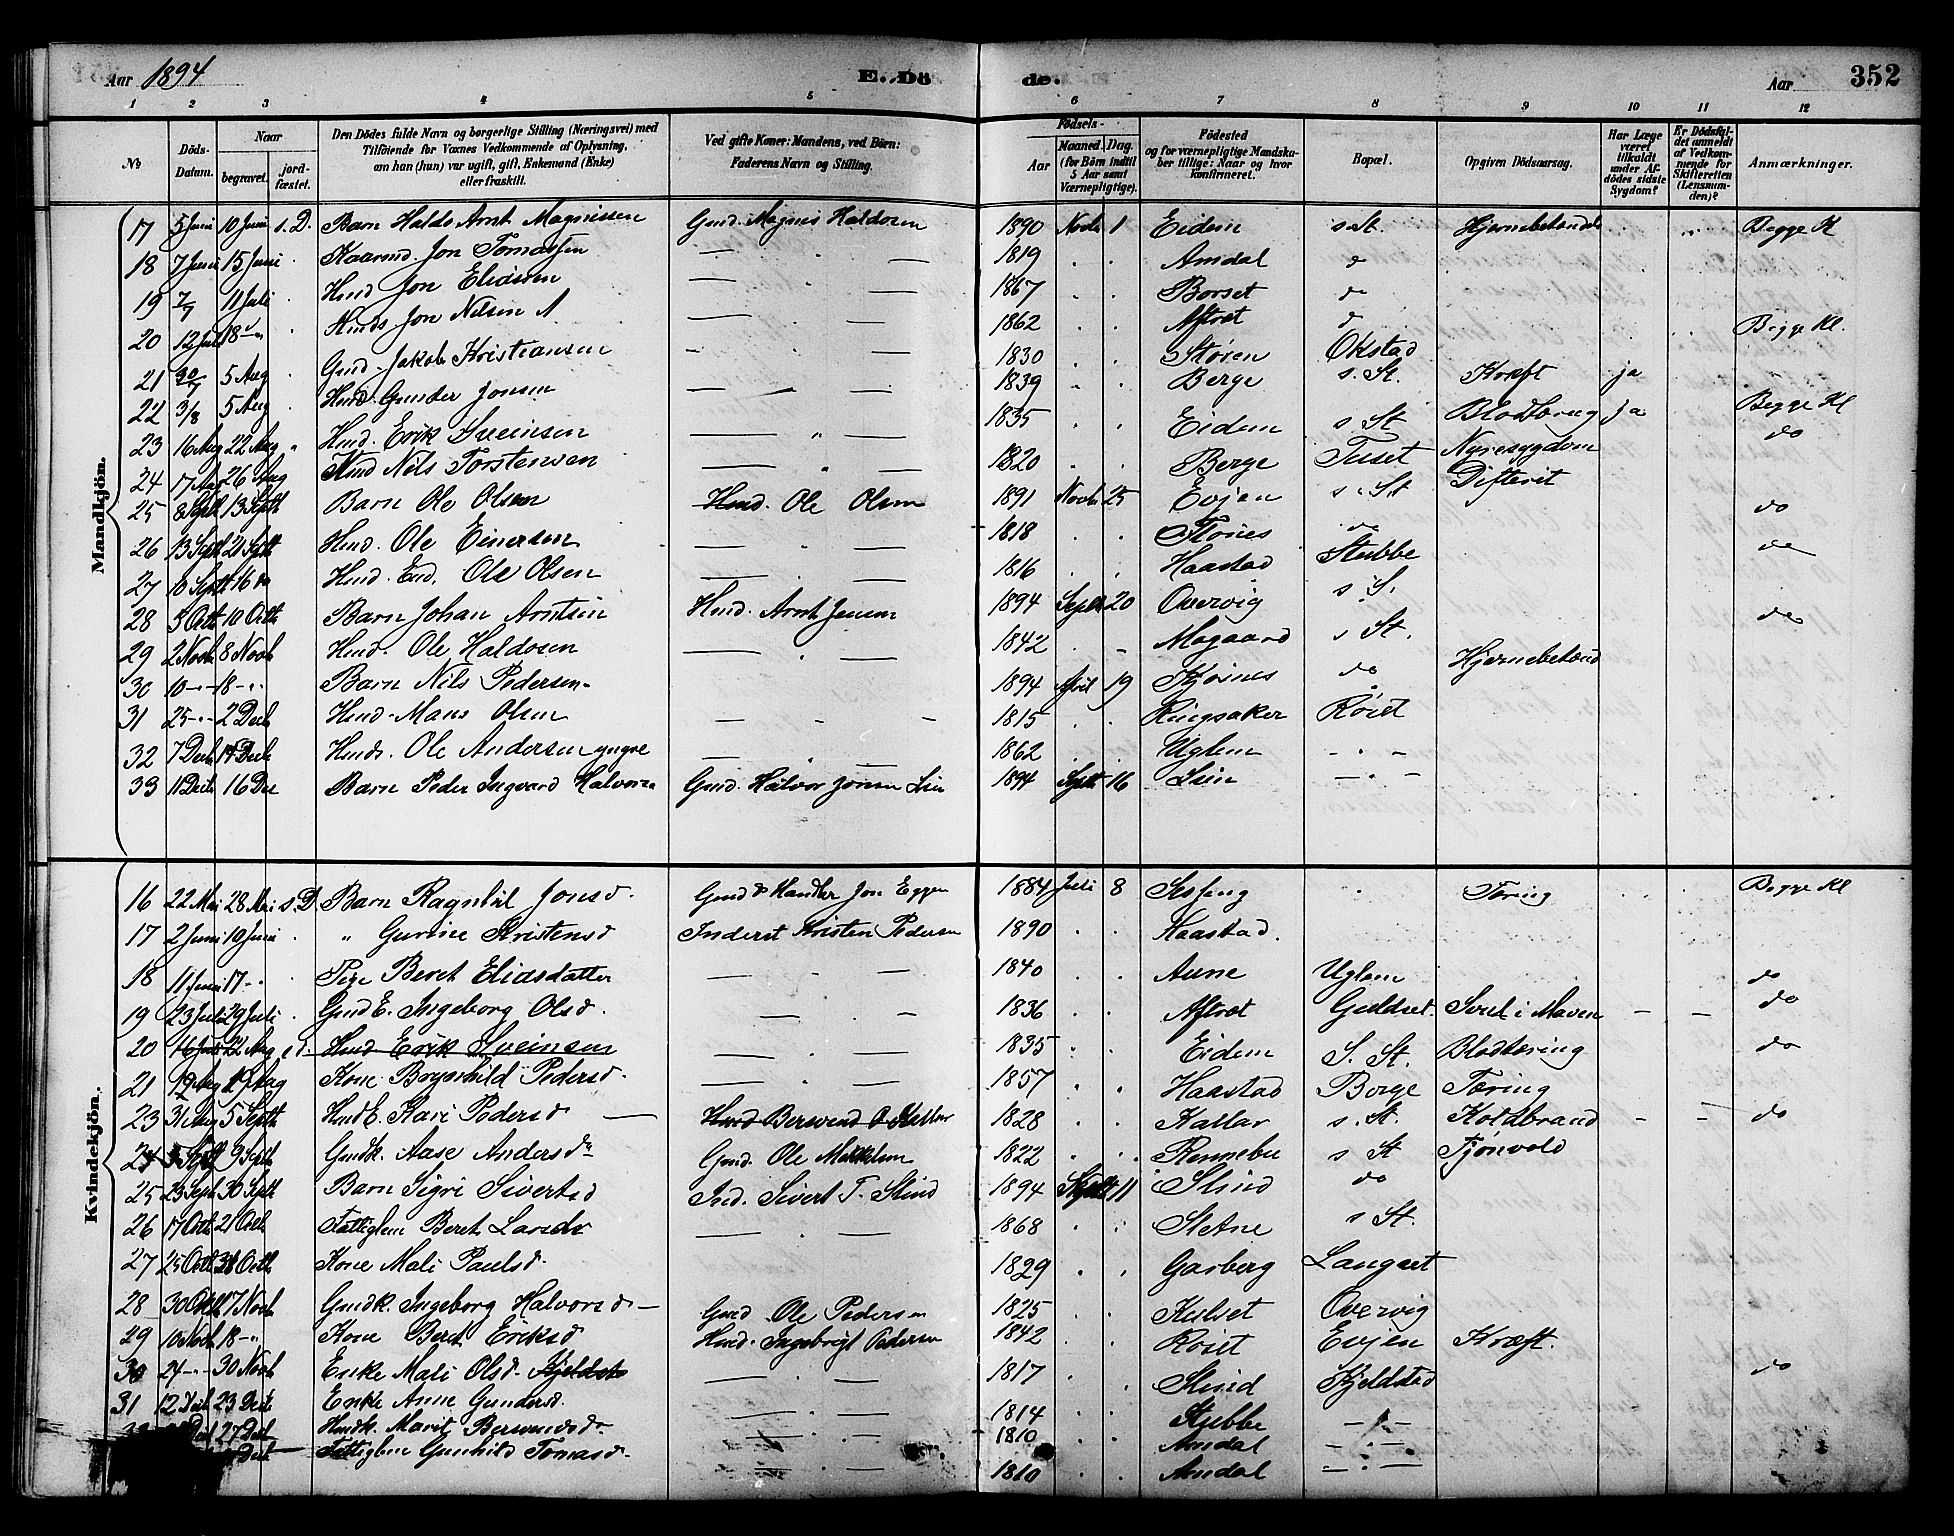 Aar 1894 E. Dö de. Aar 352
1 2 3 4 5 6 7 8 9 10 11 12
№ Döds-Datum. Naar begravet. jord-fæstet. Den Dödes fulde Navn og borgerlige Stilling (Næringsvei) med Tilföiende for Voxnes Vedkommende af Oplysning, om han (hun) var ugift, gift, Enkemand (Enke) eller fraskilt. Ved gifte Koner: Mandens, ved Börn: Faderens Navn og Stilling. Födsels- Aar Maaned. Dag. (for Börn indtil 5 Aar samt Værnepligtige). Födested og for værnepligtige Mandskaber tillige: Naar og hvor konfirmeret. Bopæl. Opgiven Dödsaarsag. Har Læge været tilkaldt under Afdödes sidste Sygdom? Er Dödsfaldet anmeldt af Vedkommende for Skifteretten (Lensmanden)? Anmærkninger.
Mandkjön.
17 5 Juni 10 Juni s. D. Barn Haldo Arnt Magnissen Gmd. Magnis Haldosen 1890 Novbr 1 Eidem s. St. Hjernebetændels Begge Kl
18 7 Juni 15 Juni Kaarmd. Jon Tomassen 1819 Amdal do
19 7/7 11 Juli Hmd Jon Eliassen 1867 Borset do
20 12 Juli 18 Hmds Jon Nilsen 1862 Aftret do Begge Kl.
21 30/7 5 Aug Gmd. Jakob Kristiansen 1830 Støren Okstad
22 3/8 5 Aug Hmd. Gunder Jonsen 1839 Berge s. St. Kræft ja
23 16 Aug 22 Aug Hmd. Erik Sveinsen 1835 Eidem s St Blodtæring Ja Begge Kl
24 17 Aug 26 Aug Hmd Nils Torstensen 1820 Berge Tuset Nyresygdom do
25 8 Septb 13 Septb Barn Ole Olsen Hmd. Ole Olsen 1891 Novbr 25 Evjen s. St Difterit do
26 13 Septb 21 Septb Hmd. Ole Einersen 1818 Stønes do
27 10 Septb 16 Hmd. Emd. Ole Olsen 1816 Haastad Stubbe do
28 5 Octb 10 Octb Barn Johan Arntsen Hmd. Arnt Jensen 1894 Septb 20 Overvig s. S.
29 2 Novb 8 Novb Hmd. Ole Haldosen 1842 Mogaard s St. do
30 10 18 Barn Nils Pedersen 1894 April 19 Kjøsnes do Hjernebetænd
31 25 2 Decb Hmd. Mans Olsen 1815 Ringsaker Røset
32 7 Decb 14 Decb Hmds. Ole Andersen yngre 1862 Uglem
33 11 Decb 16 Dec Barn Peder Ingvard Halvorsn Gmd. Halvor Jonsen Lien 1894 Septb 16 Lien
Kvindekjön.
16 22 Mai 28 Mai s. D. Barn Ragnhil Jonsd. Gmd & Handler Jon Eggen 1884 Juli 8 Sesseng Tæring Begge Kl
17 2 Juni 10 Juni " Gurine Kristensd Inderst Kristen Pedersen 1890 Haastad.
18 11 Juni 17 Pige Beret Eliasdatter 1840 Aune Uglem do
19 23 Juli 29 Juli Gmd E. Ingeborg Olsd. 1836 Aftret Guldset Svul i Maven do
20 22 Aug s d. Hmd Erik Sveinsen 1835 Eidem S. St. Blodtæring do
21 Aug Kone Brynhild Pedersd. 1857 Haastad Borge Tæring
23 31 Aug 5 Septb Hmd E. Kari Pedersd Hmd Bersvend O Kallar 1828 Kallar s. St. Koldbrand do
24 5 Septb 9 Septb Gmdk. Aase Andersdr Gmd. Ole Mikkelsen 1822 Rennebu s St Tjønvold
25 23 Septb 30 Septb Barn Sigri Sivertsd Ind. Sivert T. Slind 1894 Septb 11 Slind do
26 17 Octb 21 Octb Fattiglem Beret Larsdr 1868 SleAne s St.
27 25 Octb 31 Octb Kone Mali Paulsd. 1829 Garberg Langset
28 30 Octb 7 Novb Gmdk. Ingeborg Halvorsd Gmd Ole Pedersen 1825 Kulset Overvig
29 10 Novb 18 Kone Beret Eriksd Hmd. Ingebrigt Pedersen 1842 Roset Evjen Kræft.
30 24 30 Novb Enke Mali Olsd. Kjeldstd 1817 Slind Kjeldstad do
31 12 Decb 23 Decb Enke Anne Gundersd. 1814 Stubbe
27 Decb Hmdk. Marit Bersvendsdr 1810 Amdal
Decb Fattiglem Gunhild Tomasd. 1810 Amdal